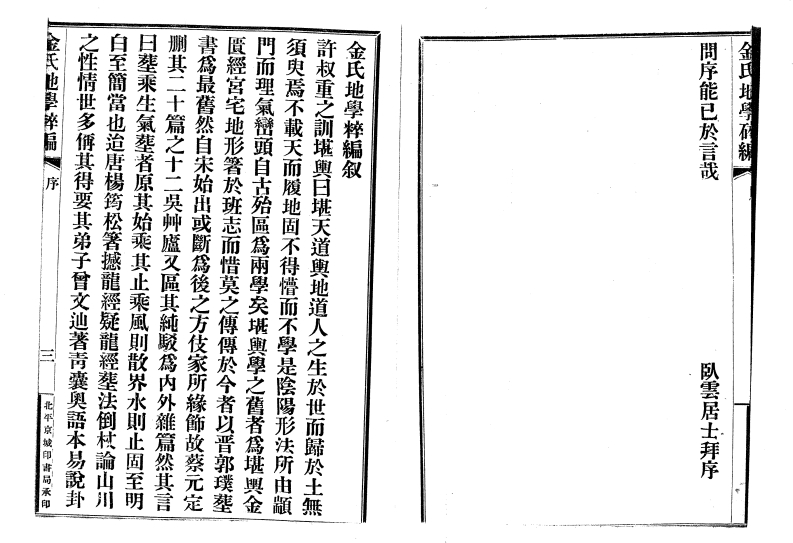 金氏地學粹編
問序能已於言哉
臥雲居士拜序
金氏地學粹編敘
許叔重之訓堪輿曰堪天道輿地道人之生於世而歸於土無
須臾焉不載天而履地固不得懵而不學是陰陽形法所由顓
門而理氣巒頭自古殆區爲兩學矣堪輿學之舊者爲堪輿金
匱經宮宅地形箸於班志而惜莫之傳傳於今者以晋郭璞塟
書爲最舊然自宋始出或斷爲後之方伎家所緣飾故蔡元定
刪其二十篇之十二吳艸廬又區其純駁爲內外雜篇然其言
曰塟乘生氣塟者原其始乘其止乘風則散界水則止固至明
白至簡當也迨唐楊筠松箸撼龍經疑龍經塟法倒杖論山川
之性情世多偁其得要其弟子曾文辿著靑囊奧語本易說卦
金氏地學粹編
序
三
北平京城印書局承印